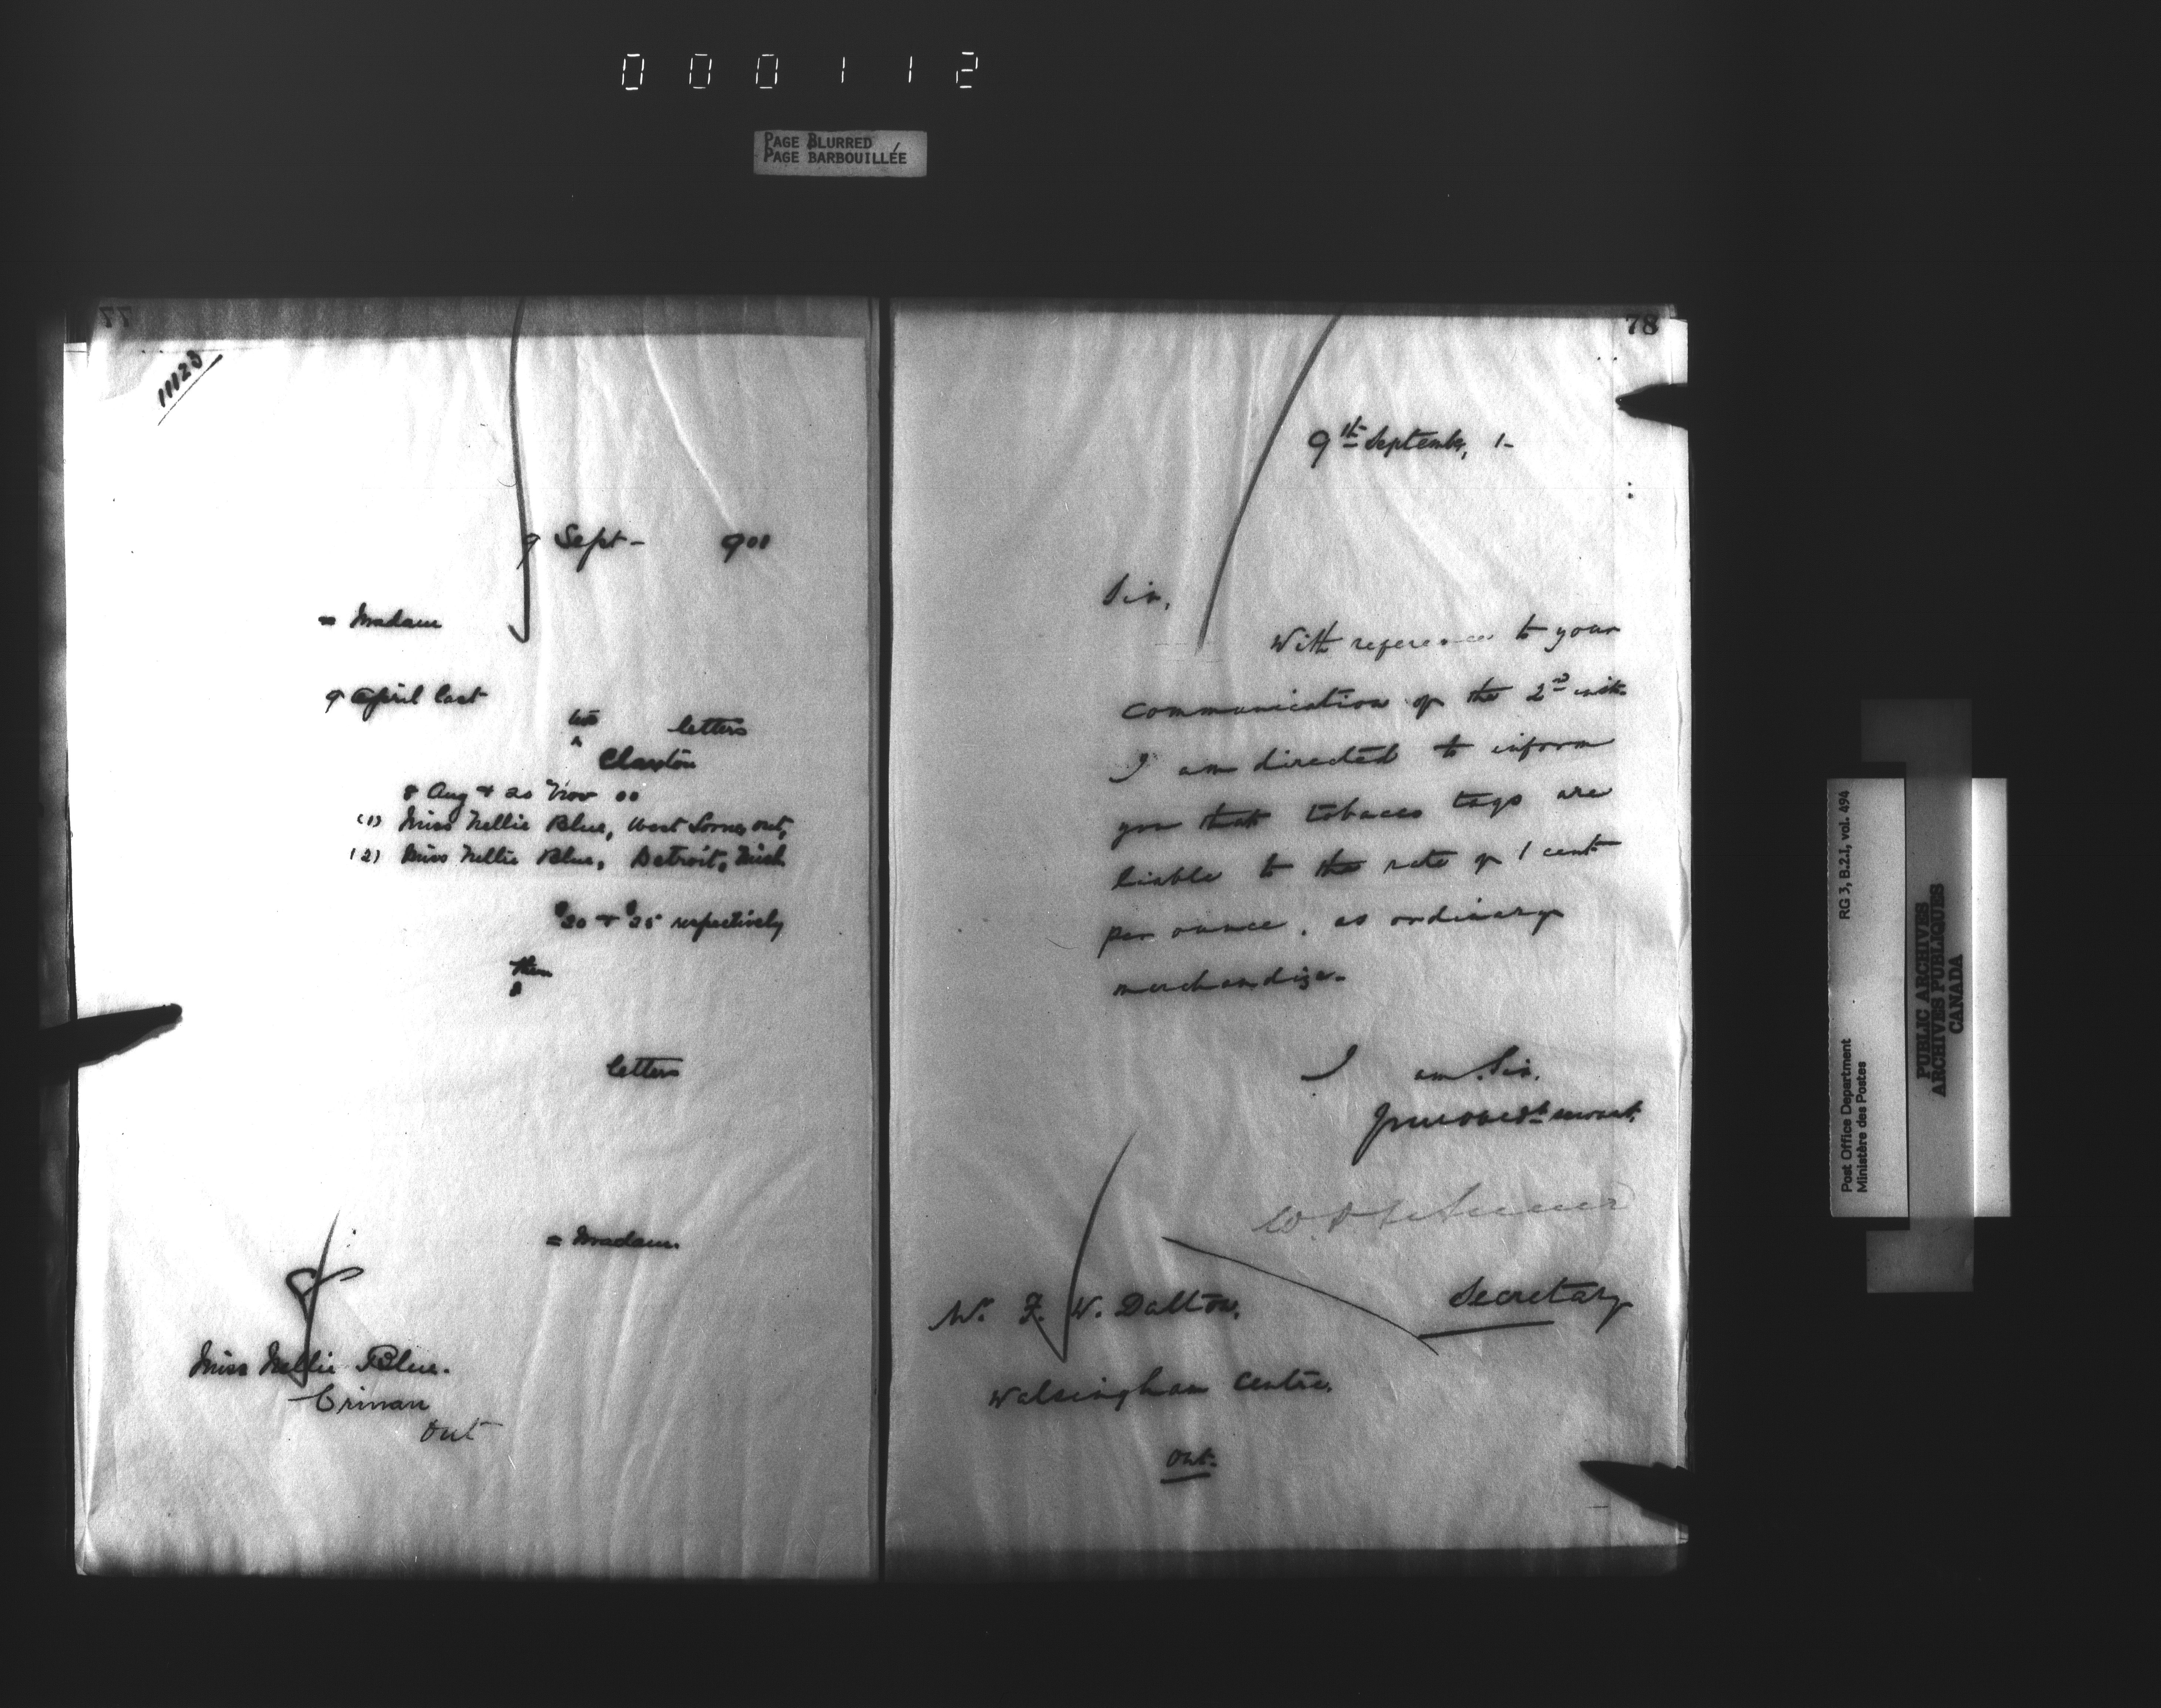 000112
PAGE BLURRED
PAGE BARBOUILLÉE
77
11123
9 Sept - 901
= Madam
9 April last
two letters
^
Claxton
8 Aug & 20 Nov 00
(1) Miss Nellie Blue, West Lorne, Ont,
(2) Miss Nellie Blue, Detroit, Mich
$20 & $25 respectively
then
^
letters
= Madam.
Miss Nellie Blue.
Crinan
Ont
78
9th September, 1-
Sir,
With reference to your
communication of the 2nd inst.
I am directed to inform
you that tobacco tags are
liable to the rate of 1 cent
per ounce, as ordinary
merchandize.
I am, Sir,
Your obedt servant,
Secretary
Mr. F. W. Dalton,
Walsingham Centre,
Ont.
Post Office Department RG 3, B.2.1, vol. 494
Ministère des Postes
PUBLIC ARCHIVES
ARCHIVES PUBLIQUES
CANADA